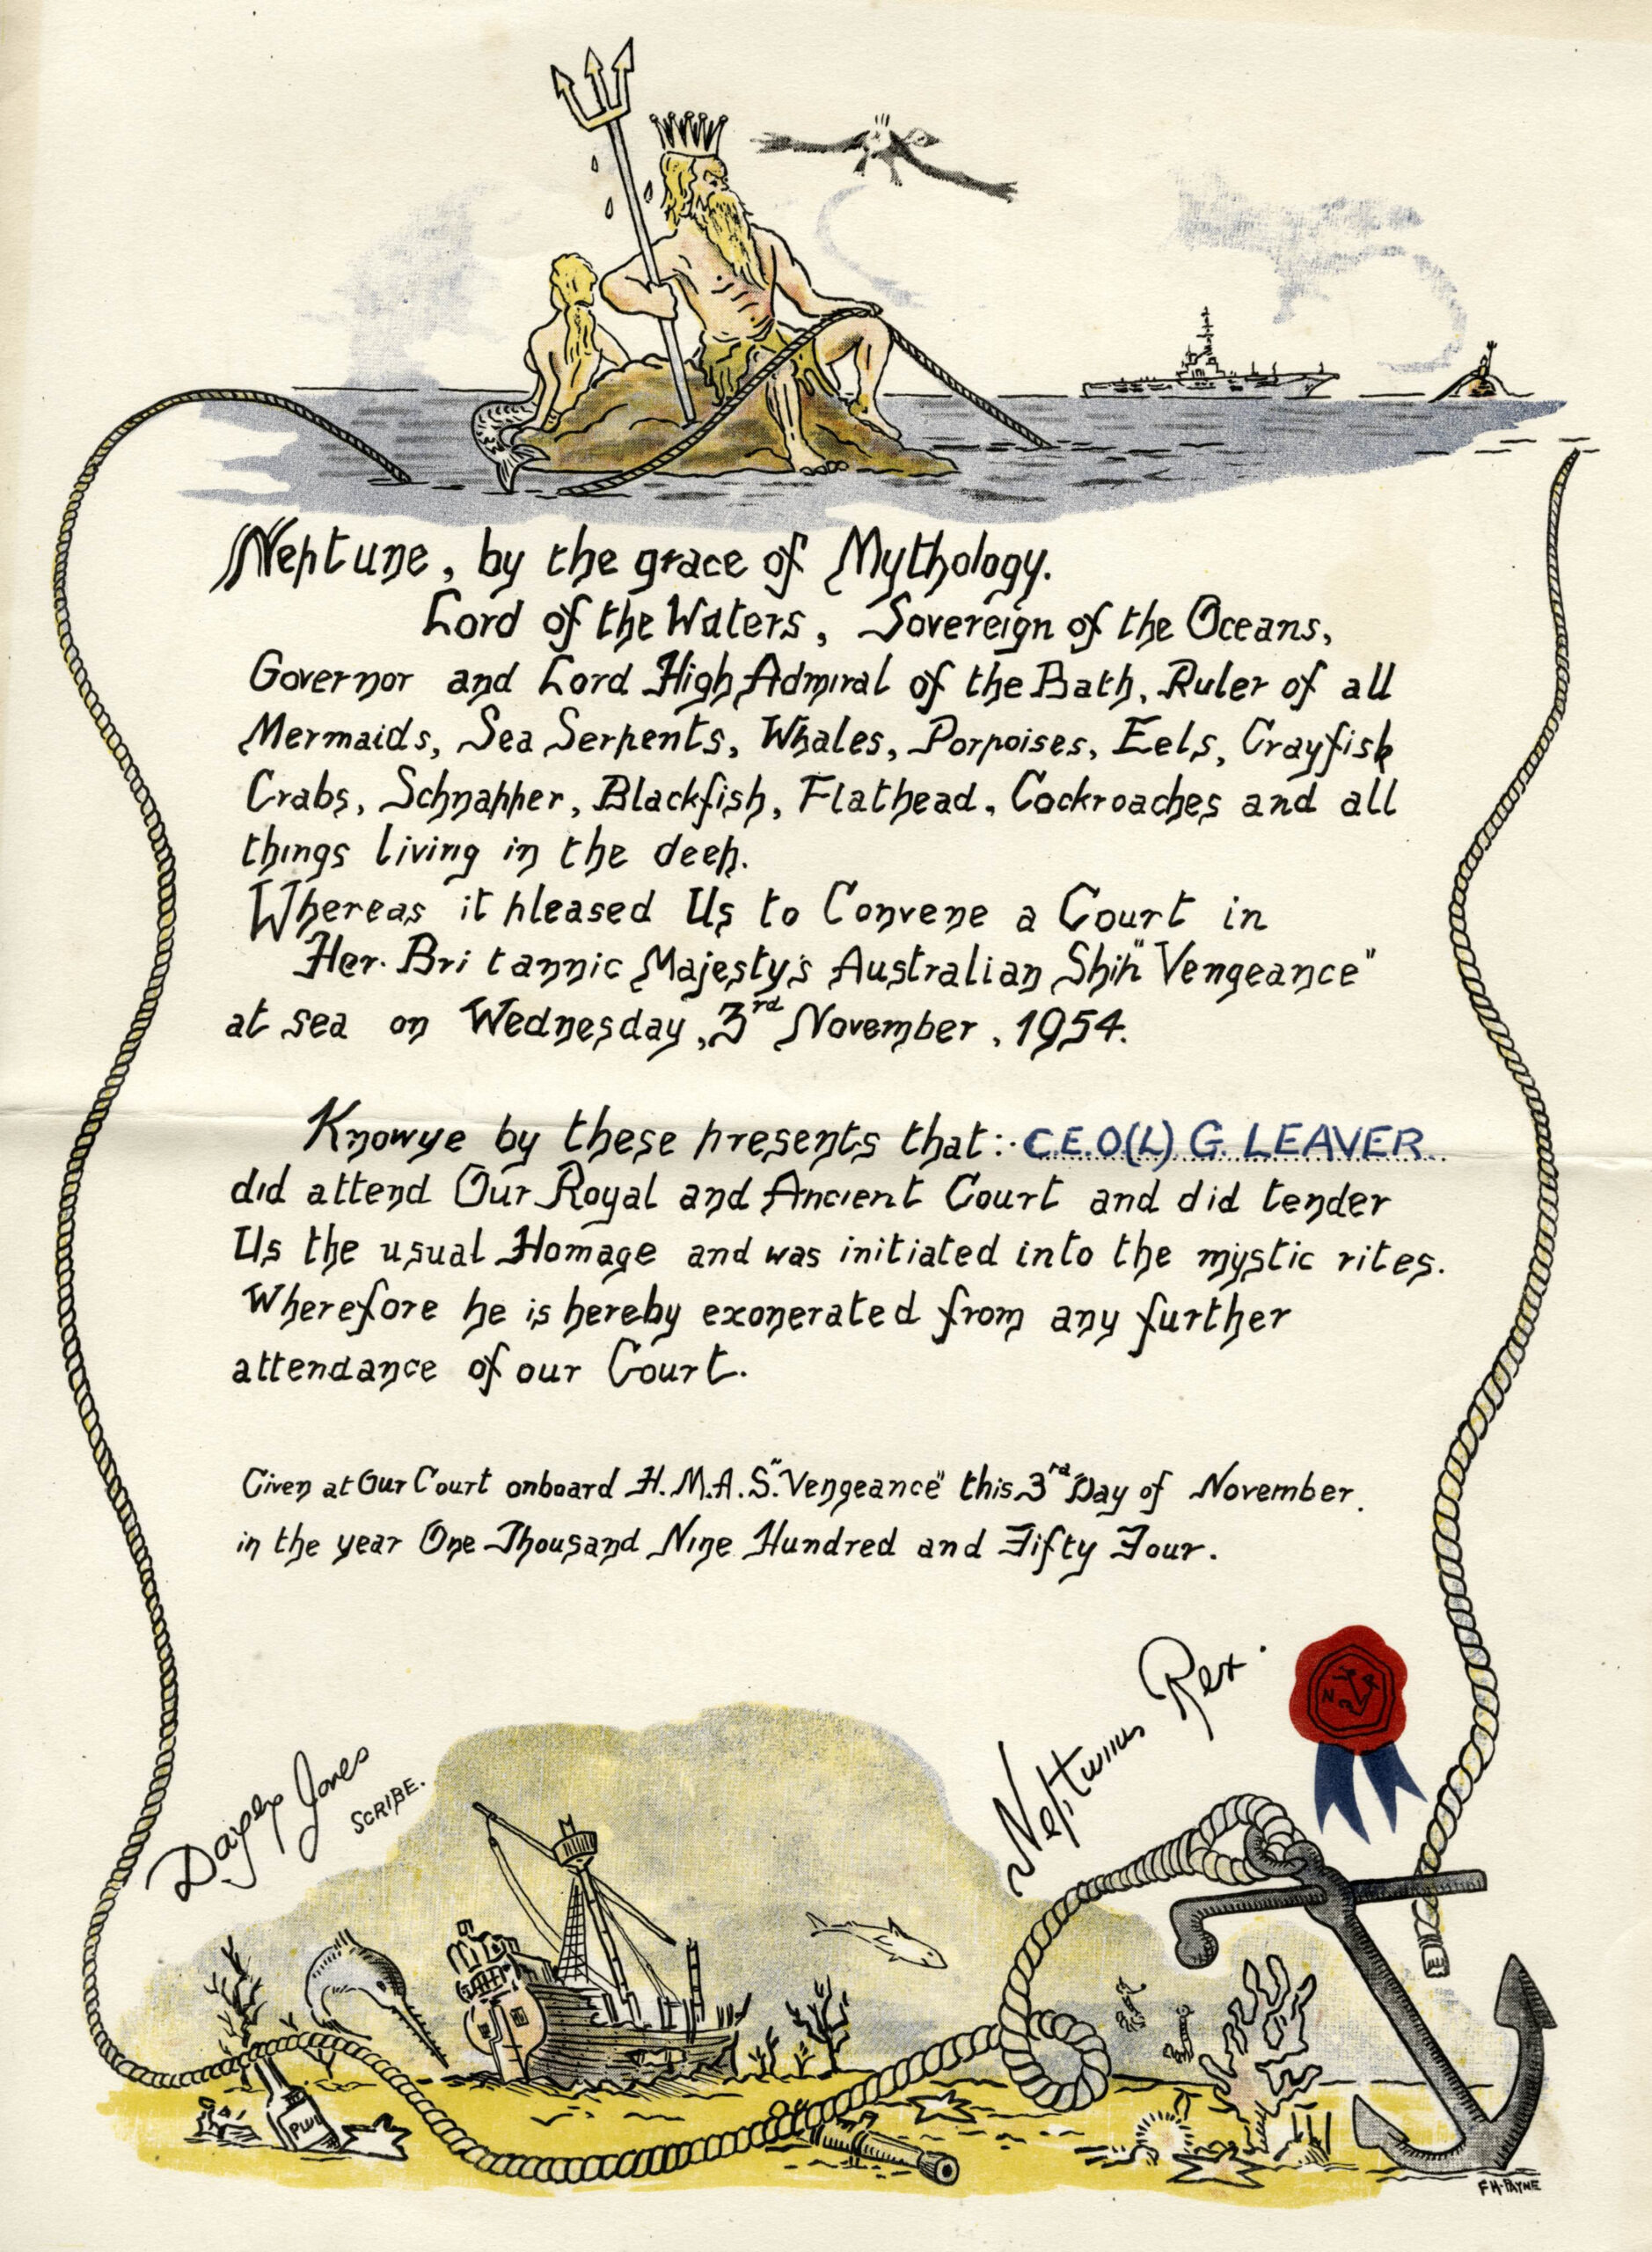 Neptune, by the grace of Mythology.
Lord of the Waters, Sovereign of the Oceans,
Governor and Lord High Admiral of the Bath, Ruler of all
Mermaids, Sea Serpents, Whales, Porpoises, Eels, Crayfish
Crabs, Schnapper, Blackfish, Flathead, Cockroaches and all
things living in the deep.
Whereas it pleased Us to Convene a Court in
Her Britannic Majesty's Australian Ship "Vengeance"
at sea on Wednesday, 3rd November, 1954.
Knowye by these presents that:- C.E.O(L) G. LEAVER
did attend Our Royal and Ancient Court and did tender
Us the usual Homage and was initiated into the mystic rites.
Wherefore he is hereby exonerated from any further
attendance of our Court.
Given at Our Court onboard H.M.A.S. "Vengeance" this 3rd Day of November.
in the year One Thousand Nine Hundred and Fifty Four.
Neptunus Rex.
N R
Davey Jones
SCRIBE.
F.H. PAYNE